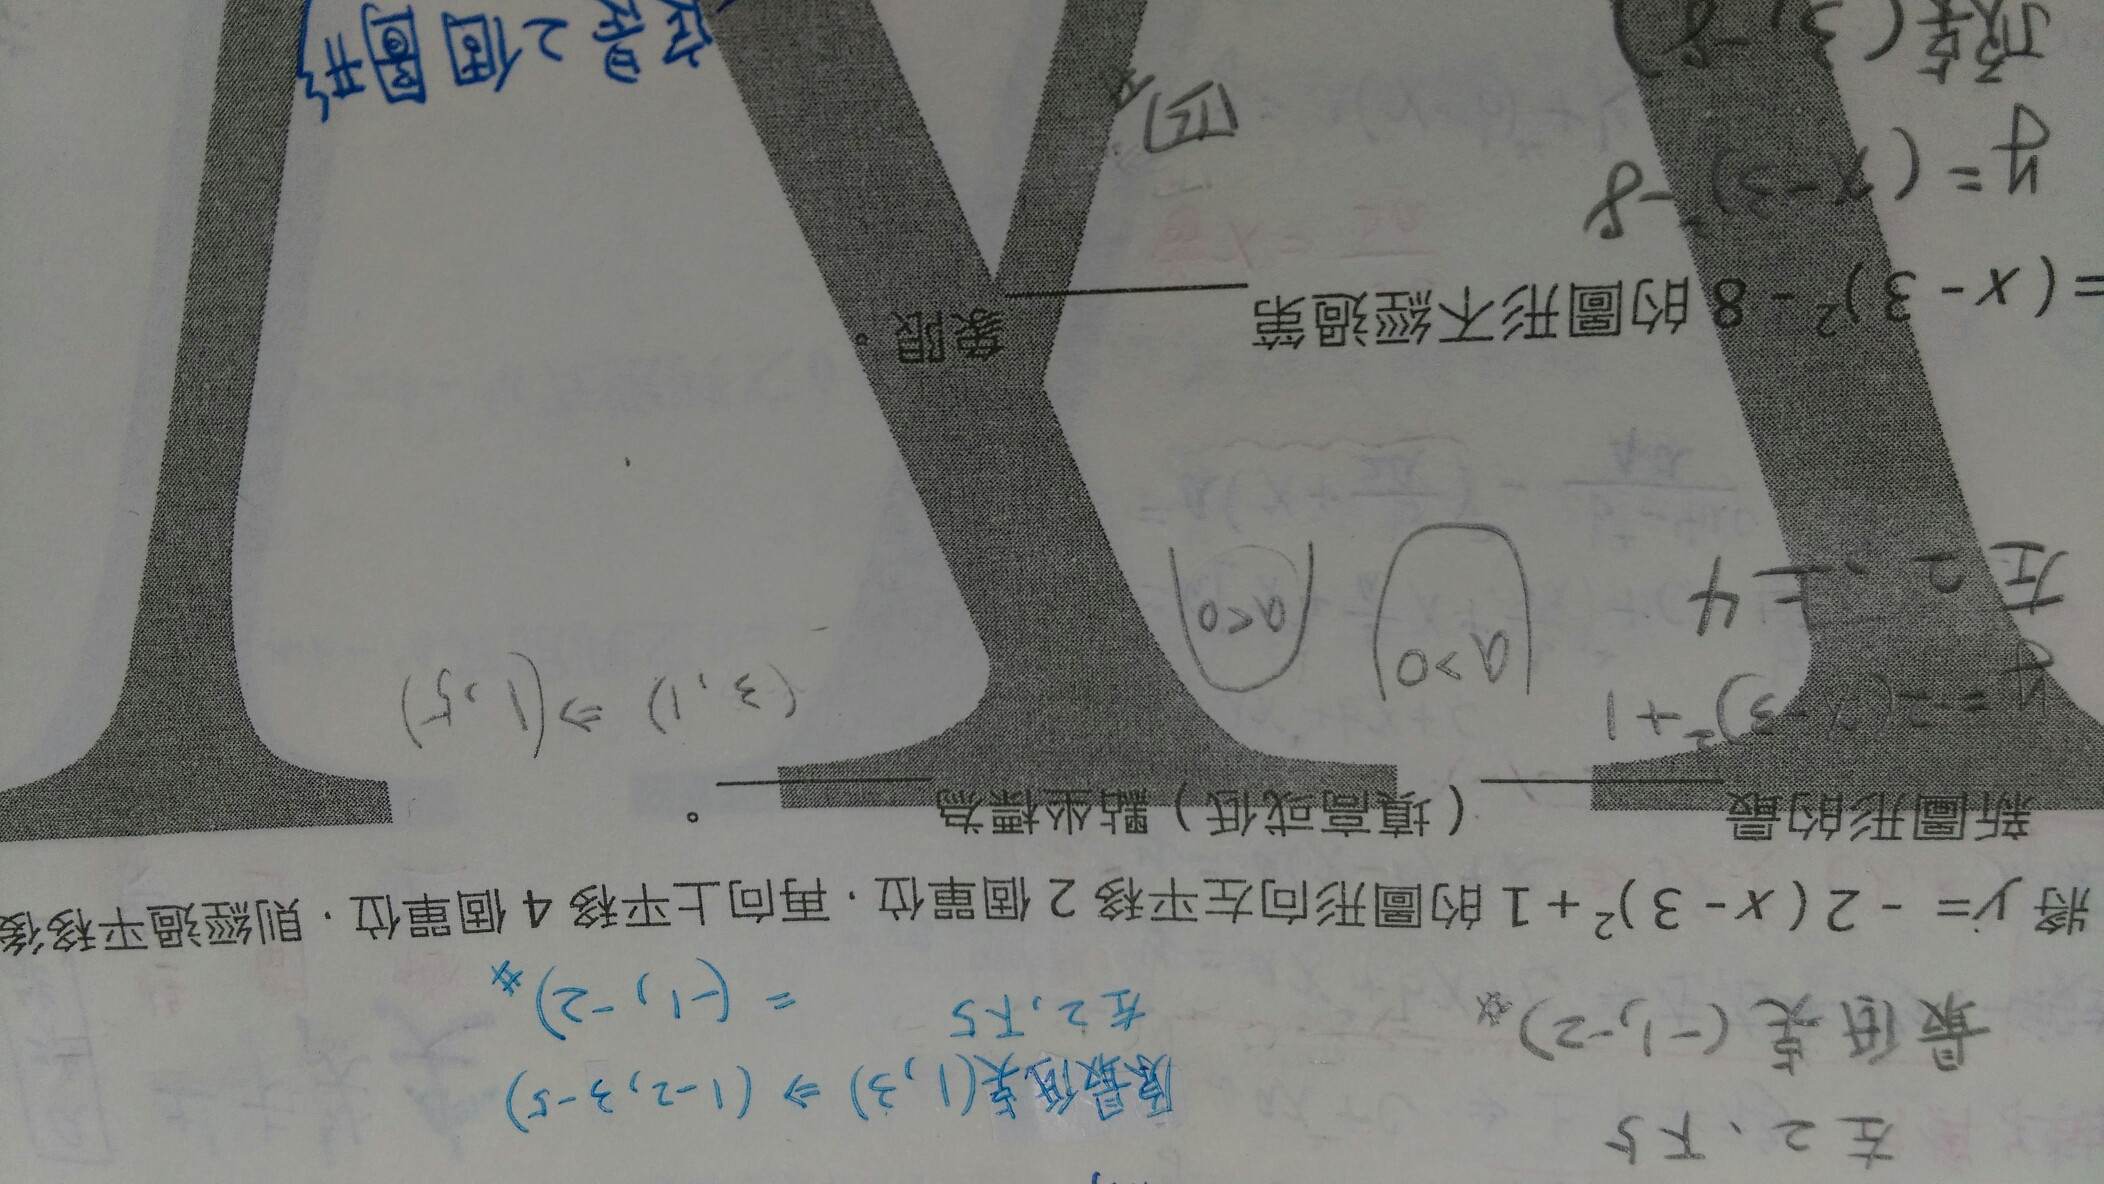 左2、下5
原最低点(1,3)⇒(1-2,3-5)
最低点(-1,-2)
左2,下5 =(-1,-2)#
將 y = - 2 ( x - 3 )² + 1 的圖形向左平移 2 個單位,再向上平移 4 個單位,則經過平移後
新圖形的最 ( 填高或低 ) 點坐標為 。
y=-2(x-3)²+1
(3,1)⇒(1,5)
a>0
a<0
左2,上4
= ( x - 3 )² - 8 的圖形不經過第 象限。
y=(x-3)²-8
四
頂点(3,-8)
2個圖形